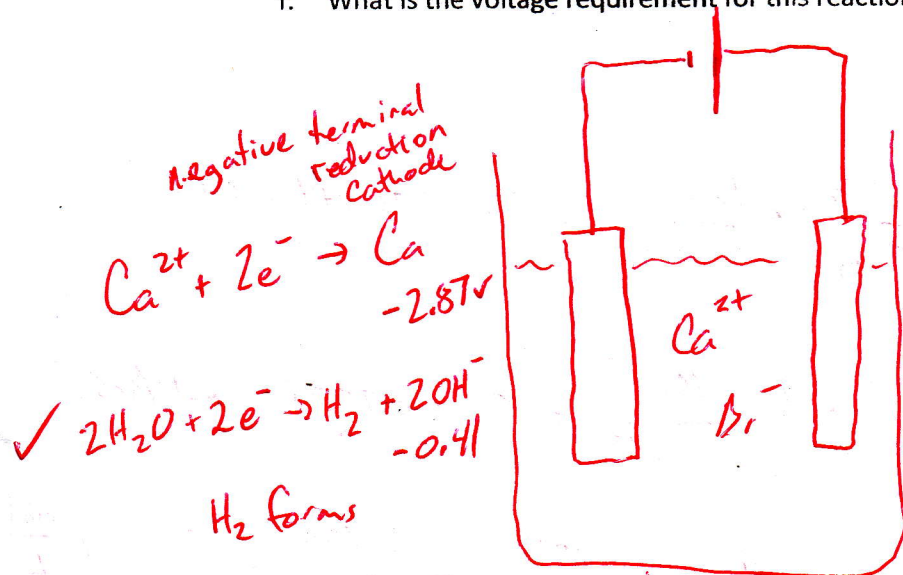 1. What is the voltage requirement for this reaction
negative terminal
reduction
cathode
Ca²⁺ + 2e⁻ → Ca
-2.87v
✓ 2H₂O + 2e⁻ → H₂ + 2OH⁻
-0.41
H₂ forms
Ca²⁺
Br⁻